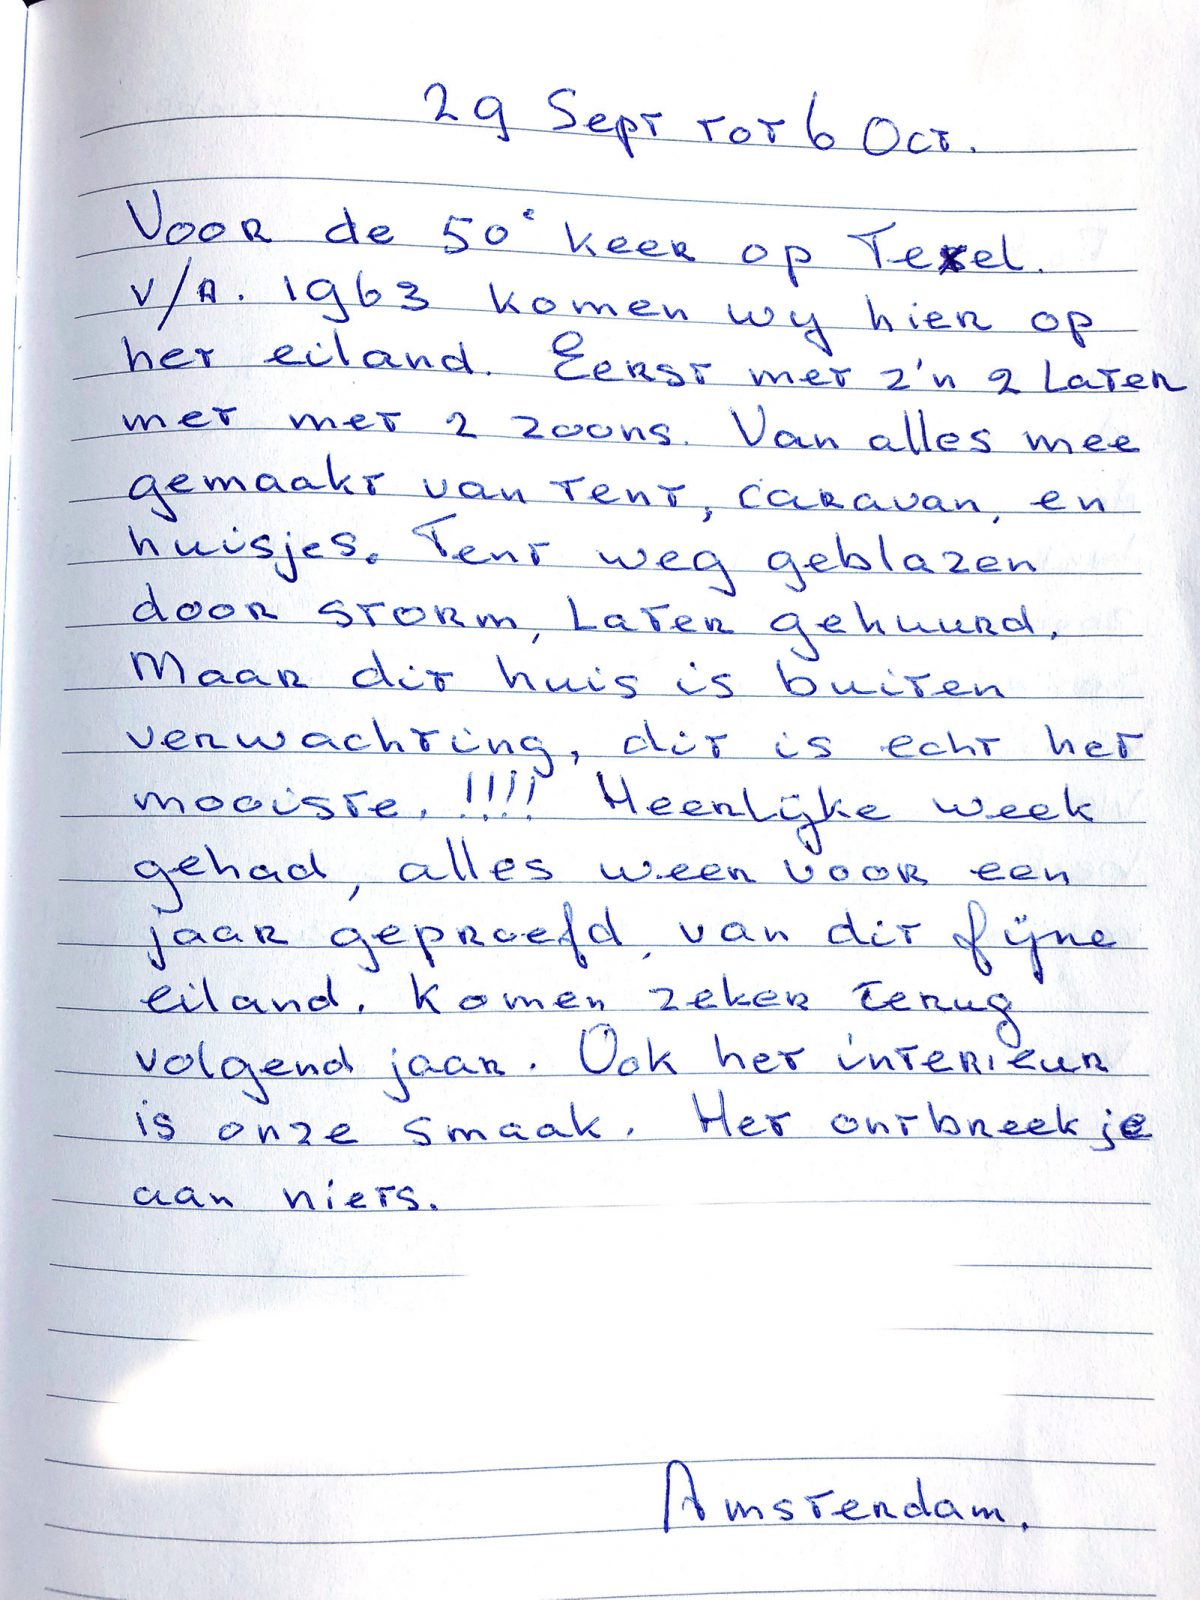 29 Sept tot 6 Oct.
Voor de 50e keer op Texel.
v/a. 1963 komen wy hier op
het eiland. Eerst met z'n 2 Later
met met 2 zoons. Van alles mee
gemaakt van tent, caravan, en
huisjes. Tent weg geblazen
door storm, Later gehuurd.
Maar dit huis is buiten
verwachting, dit is echt het
mooiste. !!!! Heerlijke week
gehad, alles weer voor een
jaar geproefd, van dit fijne
eiland. Komen zeker terug
volgend jaar. Ook het interieur
is onze smaak. Het ontbreek je
aan niets.
Amsterdam.